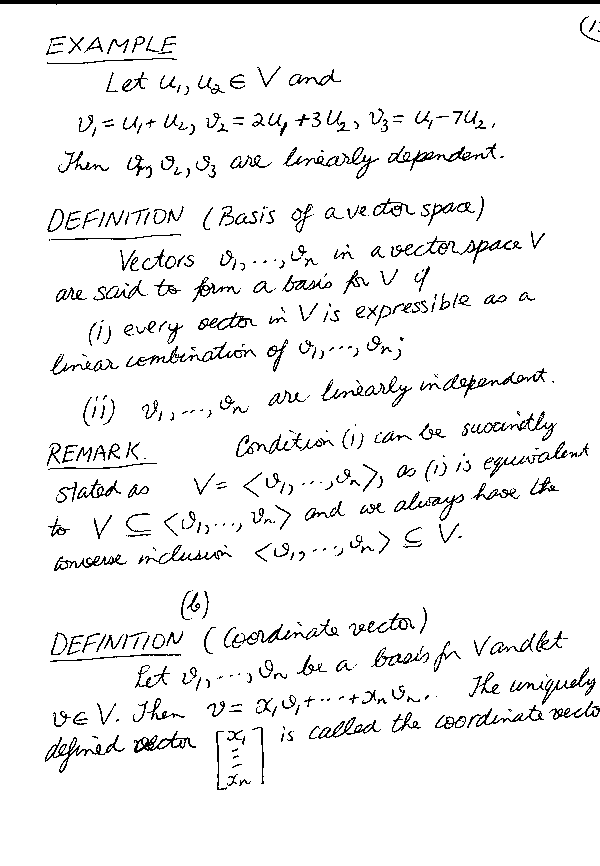 (1
EXAMPLE
Let u₁, u₂ ∈ V and
v₁ = u₁ + u₂, v₂ = 2u₁ + 3u₂, v₃ = u₁ - 7u₂.
Then v₁, v₂, v₃ are linearly dependent.
DEFINITION (Basis of a vector space)
Vectors v₁, ..., vₙ in a vector space V
are said to form a basis for V if
(i) every vector in V is expressible as a
linear combination of v₁, ..., vₙ;
(ii) v₁, ..., vₙ are linearly independent.
REMARK. Condition (i) can be succinctly
stated as V = <v₁, ..., vₙ>, as (i) is equivalent
to V ⊆ <v₁, ..., vₙ> and we always have the
converse inclusion <v₁, ..., vₙ> ⊆ V.
(b)
DEFINITION (Coordinate vector)
Let v₁, ..., vₙ be a basis for V and let
v ∈ V. Then v = x₁v₁ + ... + xₙvₙ. The uniquely
defined vector [x₁ ⋮ xₙ] is called the coordinate vecto